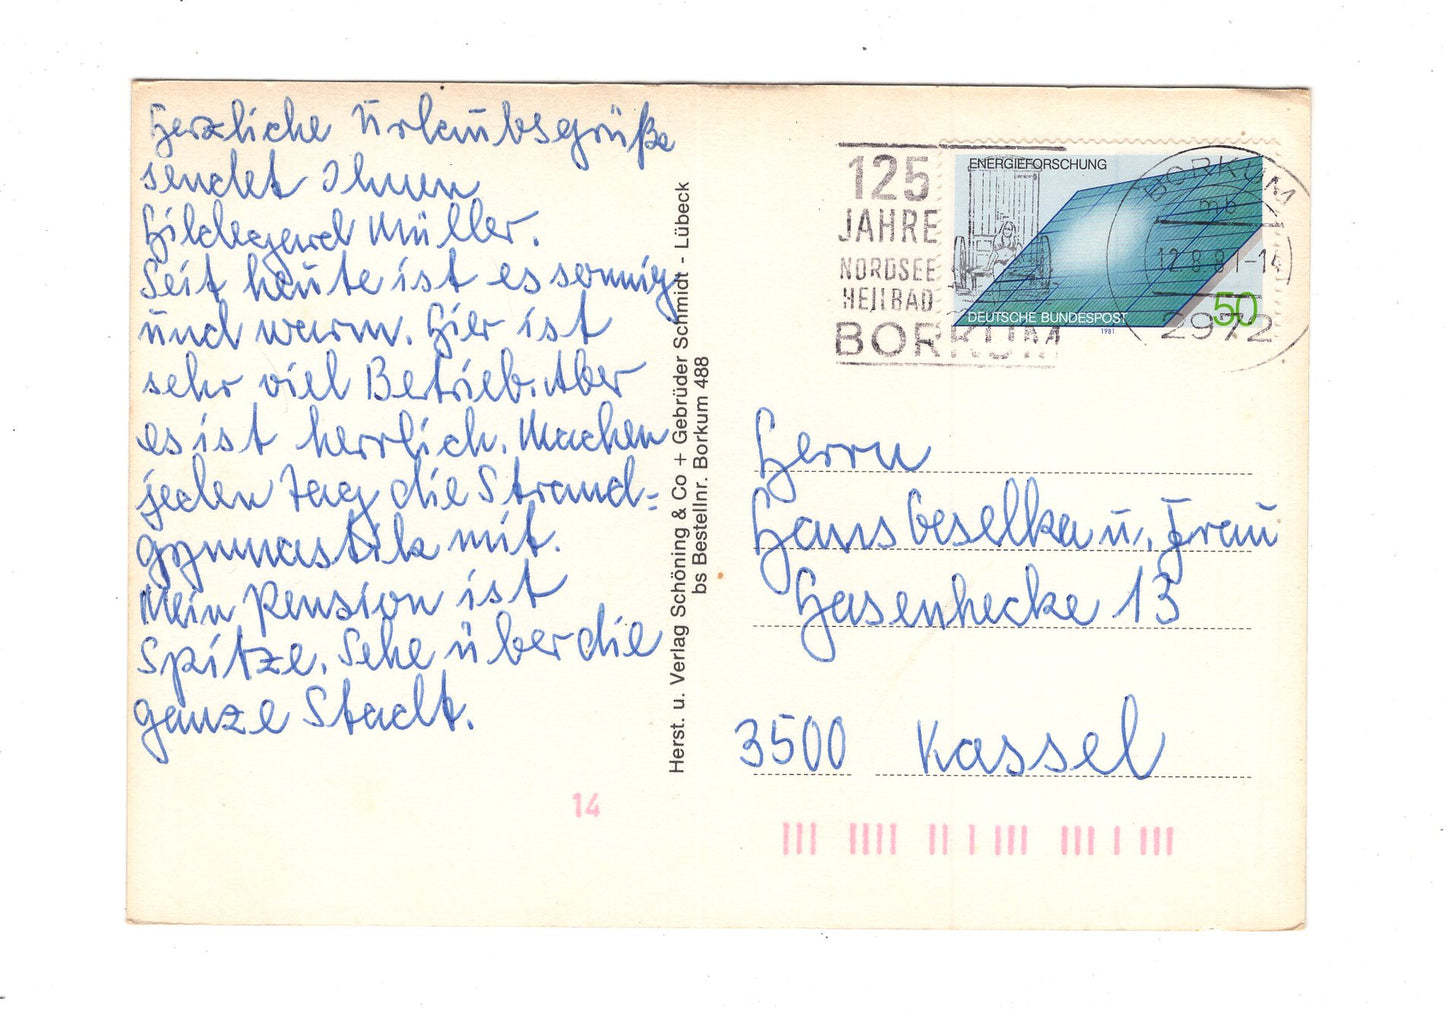 Herzliche Urlaubsgrüße
sendet Ihnen
Hildegard Müller.
Seit heute ist es sonnig
und warm. Hier ist
sehr viel Betrieb. Aber
es ist herrlich. Machen
jeden Tag die Strand=
gymnastik mit.
Mein Pension ist
Spitze. Sehe über die
ganze Stadt.
14
Herst. u. Verlag Schöning & Co + Gebrüder Schmidt - Lübeck
bs Bestellnr. Borkum 488
125
JAHRE
NORDSEE
HEILBAD
BORKUM
ENERGIEFORSCHUNG
DEUTSCHE BUNDESPOST
1981
50
BORKUM
mb
12.8.81-14
2972
Herrn
Hans Geselka u. Frau
Hasenhecke 13
3500 Kassel